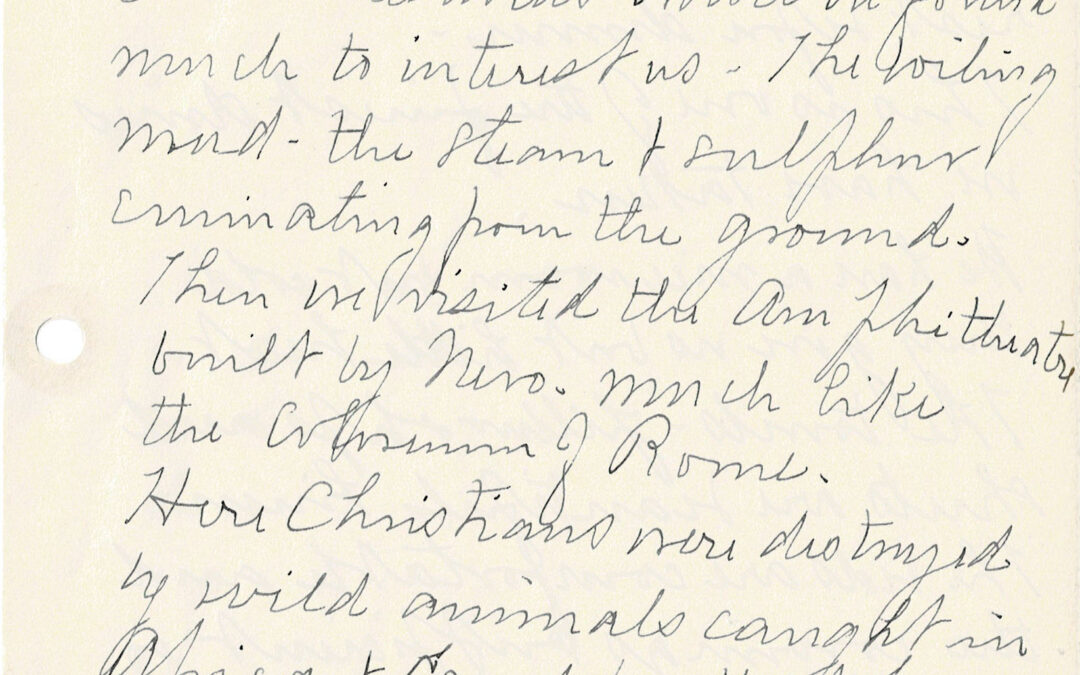 much to interest us - The boiling
mud - the steam & sulphur
eminating from the ground.
Then we visited the Amphitheatre
built by Nero. Much like
the Colosseum of Rome.
Here Christians were destroyed
by wild animals caught in
Africa &